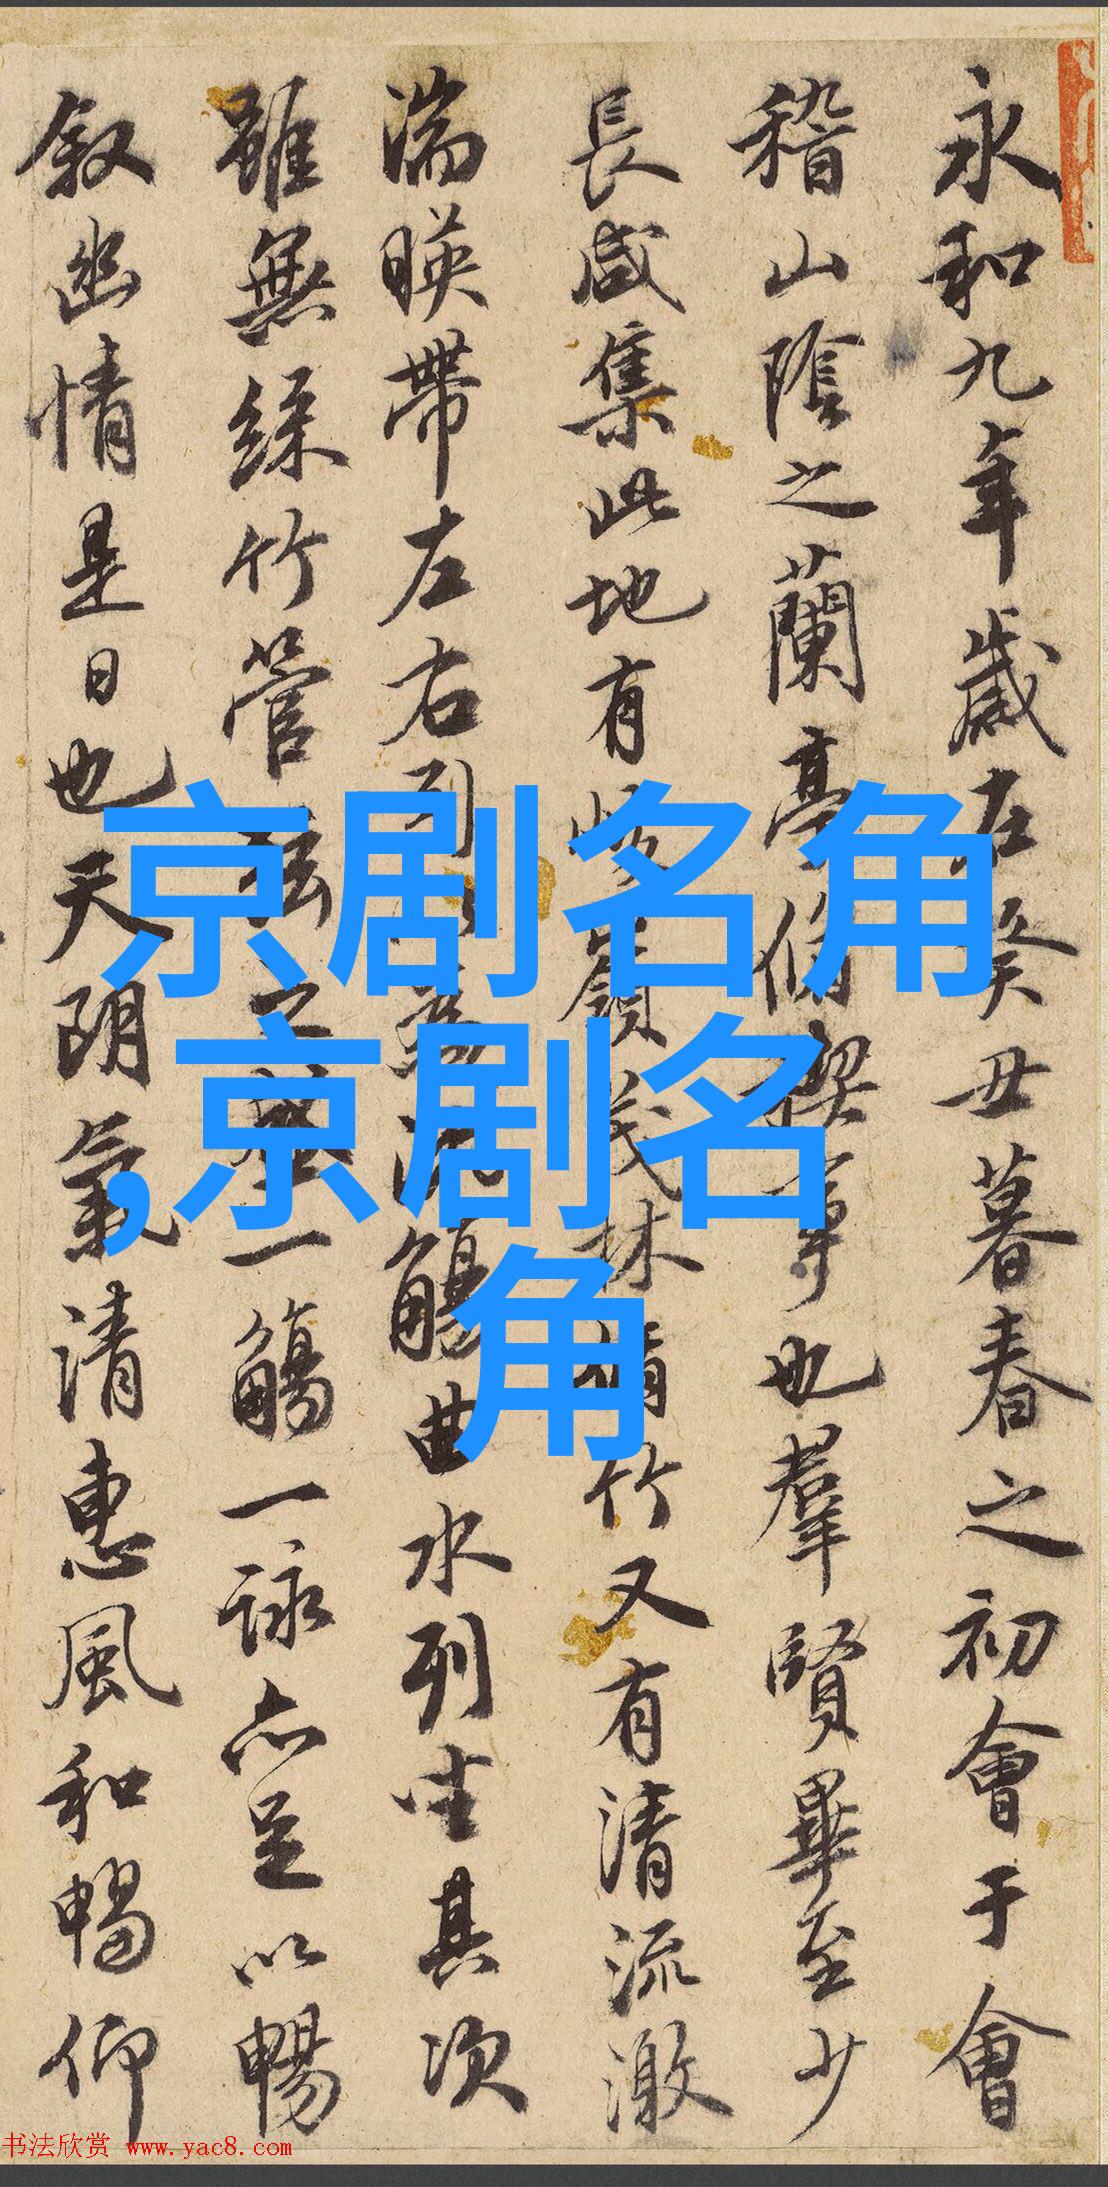 永和九年歲在癸丑暮春之初會于會
稽山陰之蘭亭脩稧事也羣賢畢至少
長咸集此地有峻嶺茂林脩竹又有清流激
湍暎帶左右引以為流觴曲水列坐其次
雖無絲竹管弦之盛一觴一詠亦足以暢
叙幽情是日也天朗氣清惠風和暢仰
京剧名角
,京剧名
角
书法欣赏 www.yac8.com